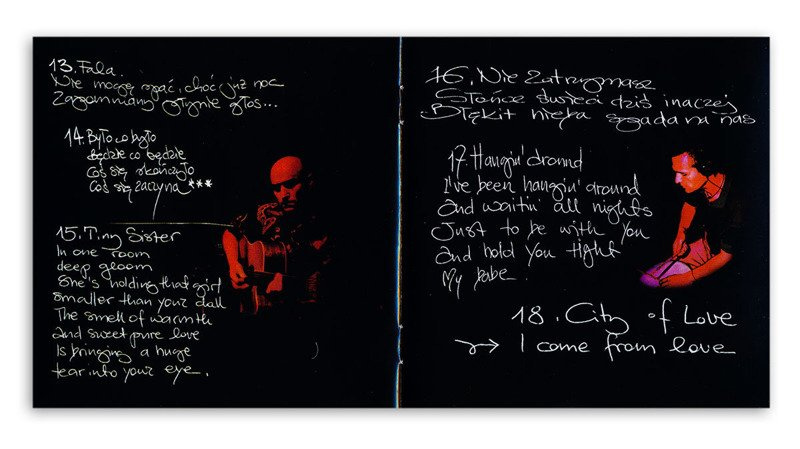 13. Fala.
Nie mogę spać, choć już noc
Zapomniany płynie głos...
14. Było co było
będzie co będzie
Coś się skończyło
Coś się zaczyna ***
15. Tiny Sister
In one room
deep gloom
She's holding that girl
smaller than your doll
The smell of warmth
and sweet pure love
Is bringing a huge
tear into your eye.
16. Nie Zatrzymasz
Słońce świeci dziś inaczej
Błękit nieba spada na nas
17 Hangin' around
I've been hangin' around
and waitin' all nights
Just to be with you
And hold you tight
My babe
18. City of Love
I come from love